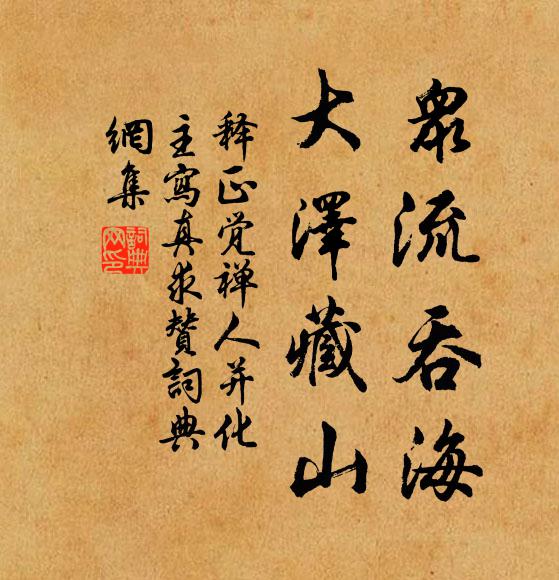 衆流吞海
大澤藏山
释正觉禅人并化
主寫真求贊詞典
網集
詞典網印